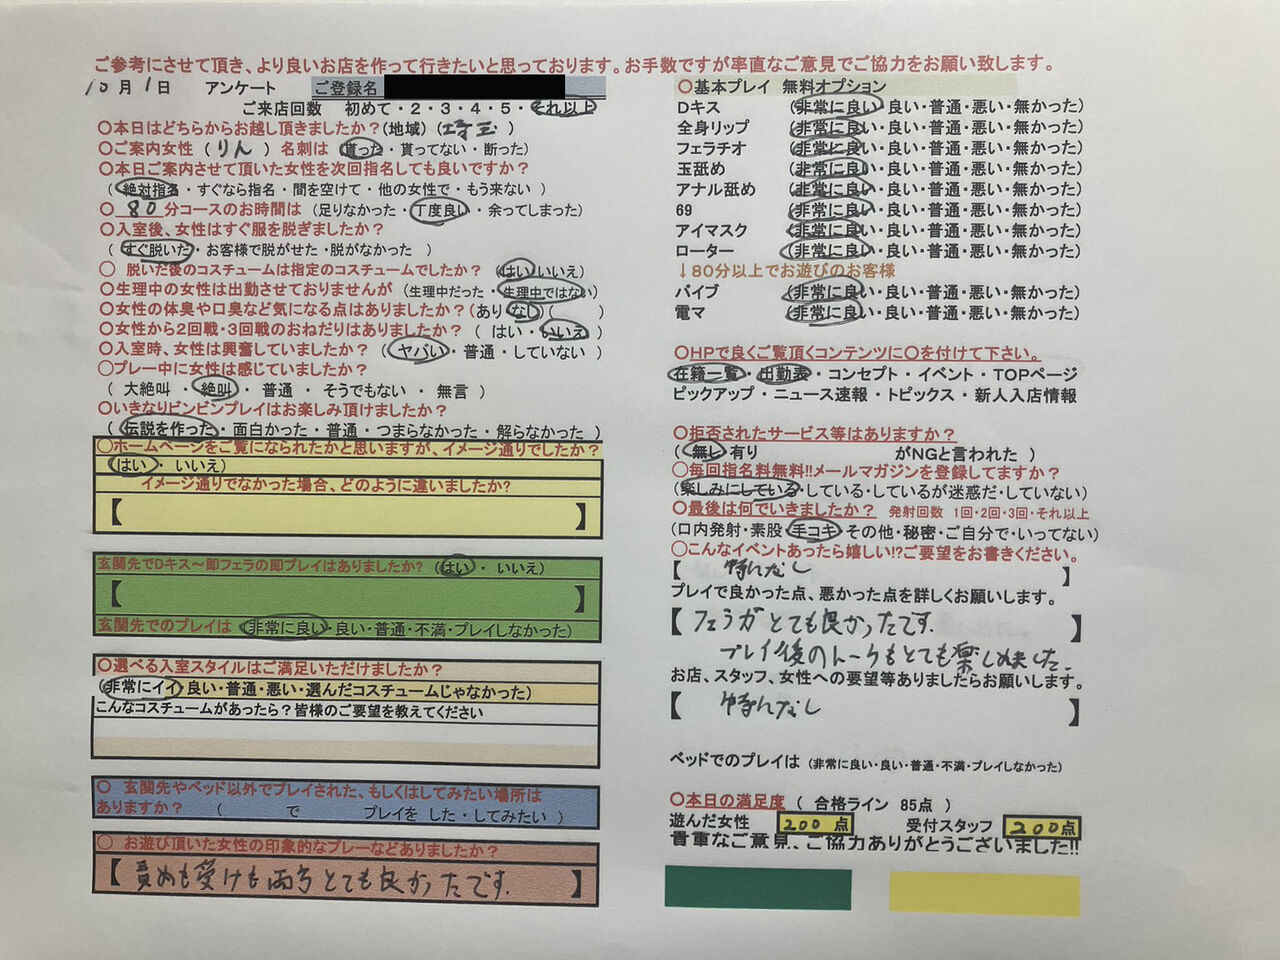 ご参考にさせて頂き、より良いお店を作って行きたいと思っております。お手数ですが率直なご意見でご協力をお願い致します。
10月1日 アンケート ご登録名
ご来店回数 初めて・2・3・4・5・それ以上
〇本日はどちらからお越し頂きましたか?(地域)(埼玉)
〇ご案内女性(りん)名刺は(貰った・貰ってない・断った)
〇本日ご案内させて頂いた女性を次回指名しても良いですか?
(絶対指名・すぐなら指名・間を空けて・他の女性で・もう来ない)
〇 80分コースのお時間は(足りなかった・丁度良い・余ってしまった)
〇入室後、女性はすぐ服を脱ぎましたか?
(すぐ脱いだ・お客様で脱がせた・脱がなかった)
〇 脱いだ後のコスチュームは指定のコスチュームでしたか? (はい・いいえ)
〇生理中の女性は出勤させておりませんが(生理中だった・生理中ではない)
〇女性の体臭や口臭など気になる点はありましたか?(あり・なし)( )
〇女性から2回戦・3回戦のおねだりはありましたか?(はい・いいえ)
〇入室時、女性は興奮していましたか?(ヤバい・普通・していない)
〇プレー中に女性は感じていましたか?
(大絶叫・絶叫・普通・そうでもない・無言)
〇いきなりビンビンプレイはお楽しみ頂けましたか?
(伝説を作った・面白かった・普通・つまらなかった・解らなかった)
〇ホームページをご覧になられたかと思いますが、イメージ通りでしたか?
(はい・いいえ)
イメージ通りでなかった場合、どのように違いましたか?
【 】
玄関先でDキス～即フェラの即プレイはありましたか?(はい・いいえ)
【 】
玄関先でのプレイは(非常に良い・良い・普通・不満・プレイしなかった)
〇選べる入室スタイルはご満足いただけましたか?
(非常にイイ・良い・普通・悪い・選んだコスチュームじゃなかった)
こんなコスチュームがあったら?皆様のご要望を教えてください
〇 玄関先やベッド以外でプレイされた、もしくはしてみたい場所は
ありますか? ( で プレイを した・してみたい)
〇 お遊び頂いた女性の印象的なプレーなどありましたか?
【責めも受けも両方とても良かったです。】
〇基本プレイ 無料オプション
Dキス (非常に良い・良い・普通・悪い・無かった)
全身リップ (非常に良い・良い・普通・悪い・無かった)
フェラチオ (非常に良い・良い・普通・悪い・無かった)
玉舐め (非常に良い・良い・普通・悪い・無かった)
アナル舐め (非常に良い・良い・普通・悪い・無かった)
69 (非常に良い・良い・普通・悪い・無かった)
アイマスク (非常に良い・良い・普通・悪い・無かった)
ローター (非常に良い・良い・普通・悪い・無かった)
↓80分以上でお遊びのお客様
バイブ (非常に良い・良い・普通・悪い・無かった)
電マ (非常に良い・良い・普通・悪い・無かった)
〇HPで良くご覧頂くコンテンツに〇を付けて下さい。
在籍一覧・出勤表・コンセプト・イベント・TOPページ
ピックアップ・ニュース速報・トピックス・新人入店情報
〇拒否されたサービス等はありますか?
(無し 有り がNGと言われた)
〇毎回指名料無料!!メールマガジンを登録してますか?
(楽しみにしている・している・しているが迷惑だ・していない)
〇最後は何でいきましたか? 発射回数 1回・2回・3回・それ以上
(口内発射・素股・手コキ・その他・秘密・ご自分で・いってない)
〇こんなイベントあったら嬉しい!?ご要望をお書きください。
【 特になし 】
プレイで良かった点、悪かった点を詳しくお願いします。
【フェラがとても良かったです。
プレイ後のトークもとても楽しめました。】
お店、スタッフ、女性への要望等ありましたらお願いします。
【 特になし 】
ベッドでのプレイは (非常に良い・良い・普通・不満・プレイしなかった)
〇本日の満足度(合格ライン 85点)
遊んだ女性 200点 受付スタッフ 200点
貴重なご意見、ご協力ありがとうございました!!